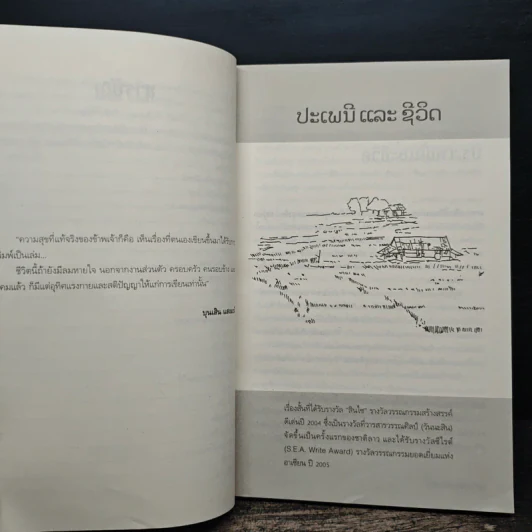 "ความสุขที่แท้จริงของข้าพเจ้าก็คือ เห็นเรื่องที่ตนเองเขียนขึ้นมาได้รับ
พิมพ์เป็นเล่ม...
ชีวิตนี้ถ้ายังมีลมหายใจ นอกจากงานส่วนตัว ครอบครัว คนรอบข้าง
คมแล้ว ก็มีแต่อุทิศแรงกายและสติปัญญาให้แก่การเขียนเท่านั้น"
บุนเสิน
ປະເພນີ ແລະ ຊີວິດ
เรื่องสั้นที่ได้รับรางวัล "สินไซ" รางวัลวรรณกรรมสร้างสรรค์
ดีเด่นปี 2004 ซึ่งเป็นรางวัลที่วารสารวรรณศิลป์ (วันนะสิน)
จัดขึ้นเป็นครั้งแรกของชาติลาว และได้รับรางวัลซีไรต์
(S.E.A. Write Award) รางวัลวรรณกรรมยอดเยี่ยมแห่ง
อาเซียน ปี 2005